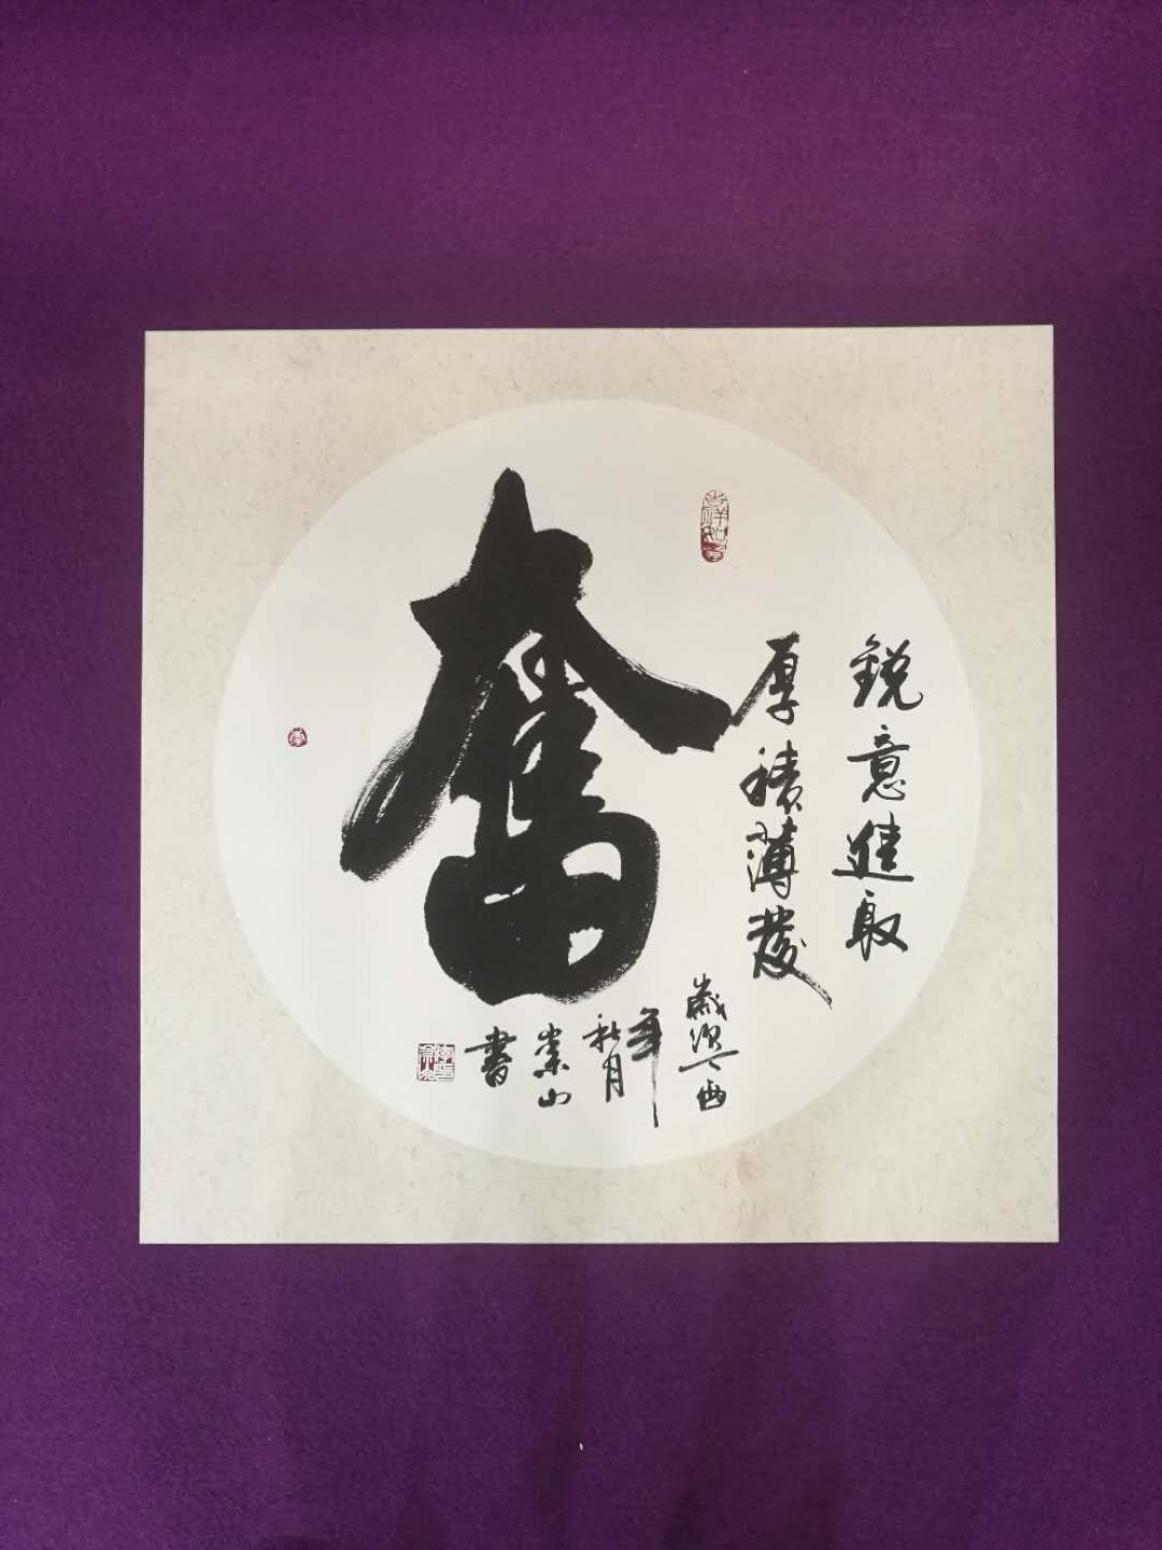 銳意進取
厚積薄發
奮
歲次丁酉
年
秋月
崇山
書
吉祥如意